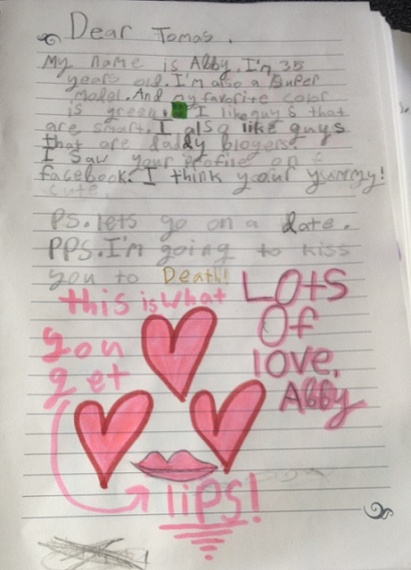 Dear Tomas.
My name is Abby. I'm 35
years old. I'm also a super
model. And my favorite color
is green. I like guys that
are smart. I also like guys
that are daddy blogers.
I saw your profile on
facebook. I think your yummy!
cute.
PS. lets go on a date.
PPS. I'm going to kiss
you to Death!
this is what
you
get
lips!
LOts
Of
love,
Abby